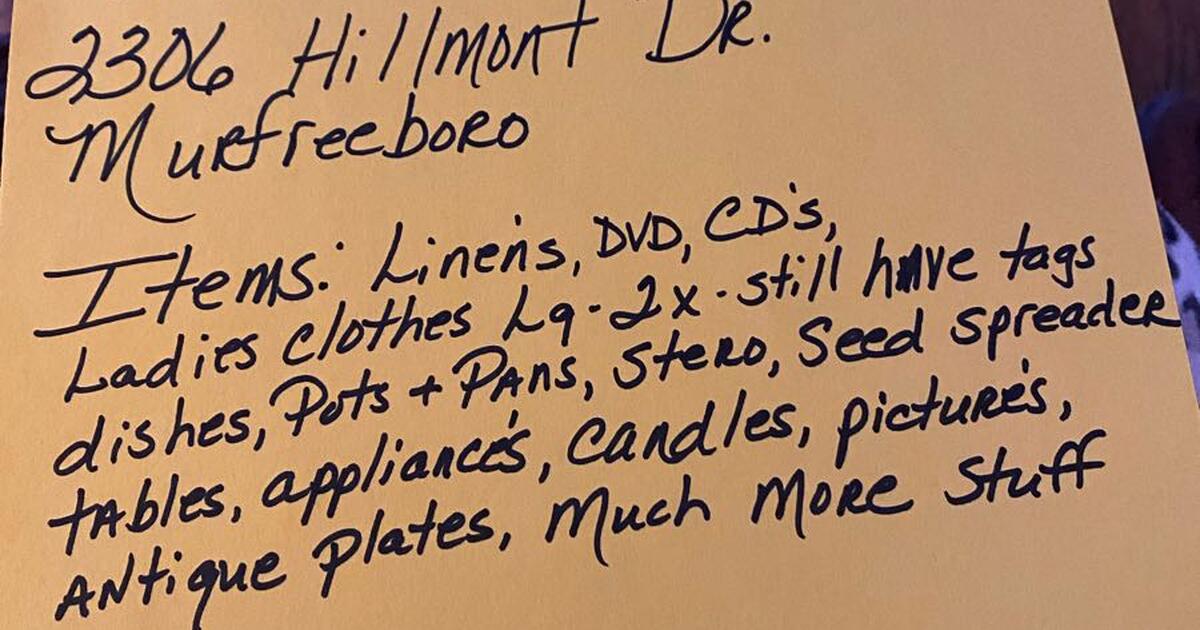 2306 Hillmont DR.
Murfreeboro
Items: Linen's, DVD, CD's,
Ladies clothes Lg-2x-still have tags
dishes, Pots + PANs, SteRo, Seed spreader
tables, appliance's, Candles, picture's,
ANtique Plates, Much More Stuff